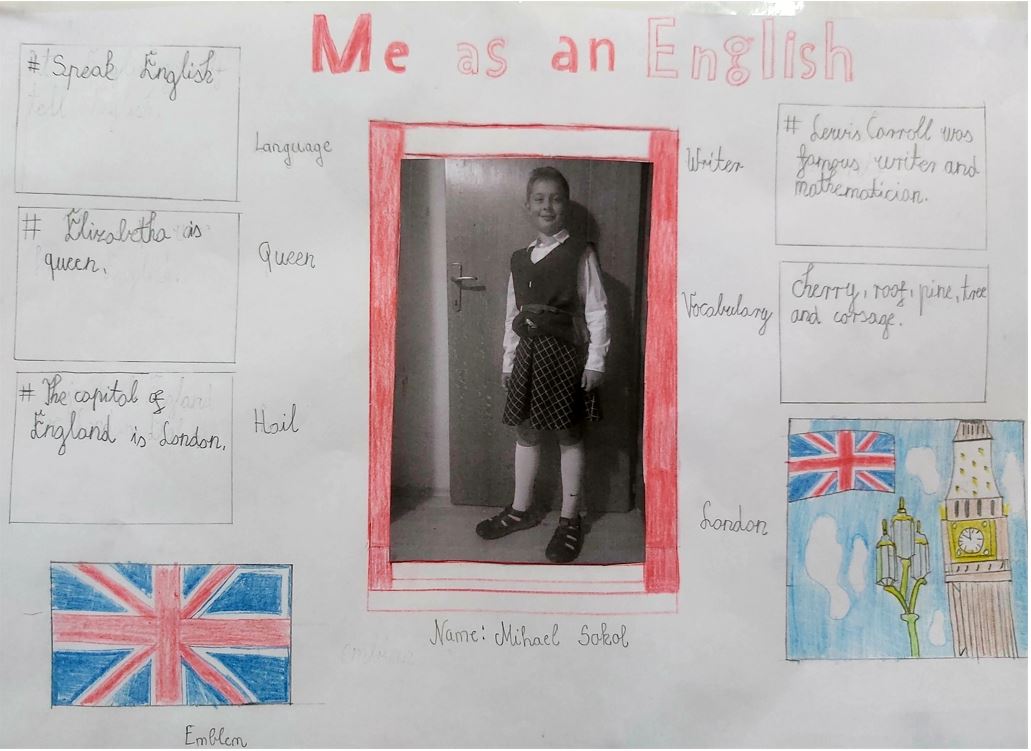 Me as an English
# Speak English
Language
# Elizabetha is
queen.
Queen
# The capital of
England is London.
Hail
Emblem
Name: Mihael Sokol
Writer
# Lewis Carroll was
famous writer and
mathematician.
Vocabulary
Cherry, roof, pine, tree
and corsage.
London